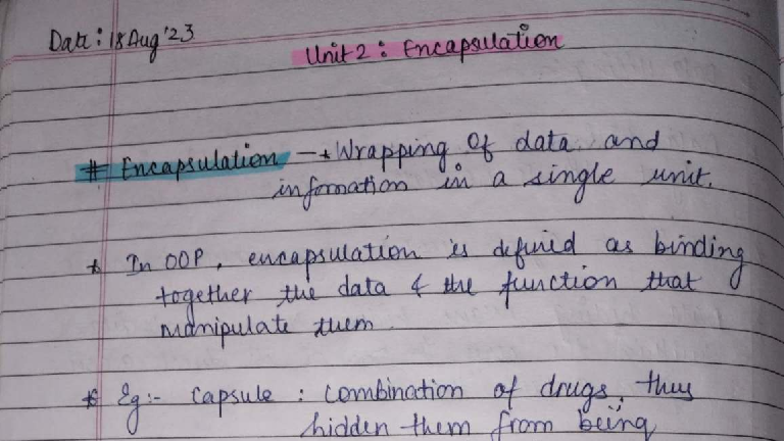 Date: 18 Aug '23
Unit 2: Encapsulation
# Encapsulation → Wrapping of data and
information in a single unit.
* In OOP, encapsulation is defined as binding
together the data & the function that
manipulate them.
* Eg:- capsule : combination of drugs, thus
hidden them from being